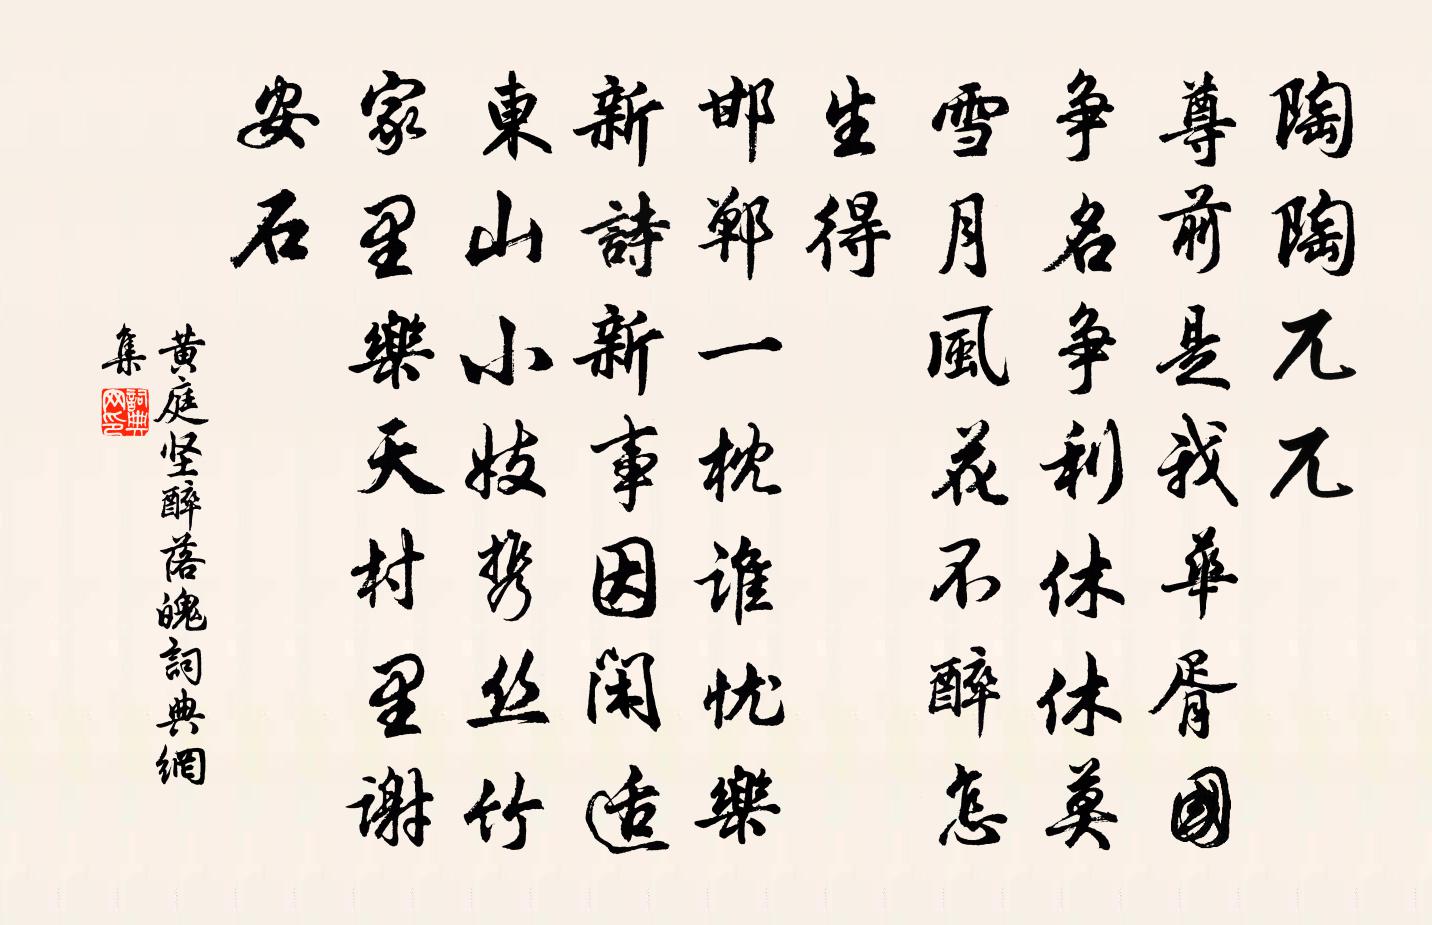 陶陶兀兀
尊前是我華胥國
争名争利休休莫
雪月風花不醉怎
生得
邯鄲一枕谁忧樂
新詩新事因闲适
東山小妓携丝竹
家里樂天村里谢
安石
黄庭坚醉落魄詞典網
集
詞典
网印